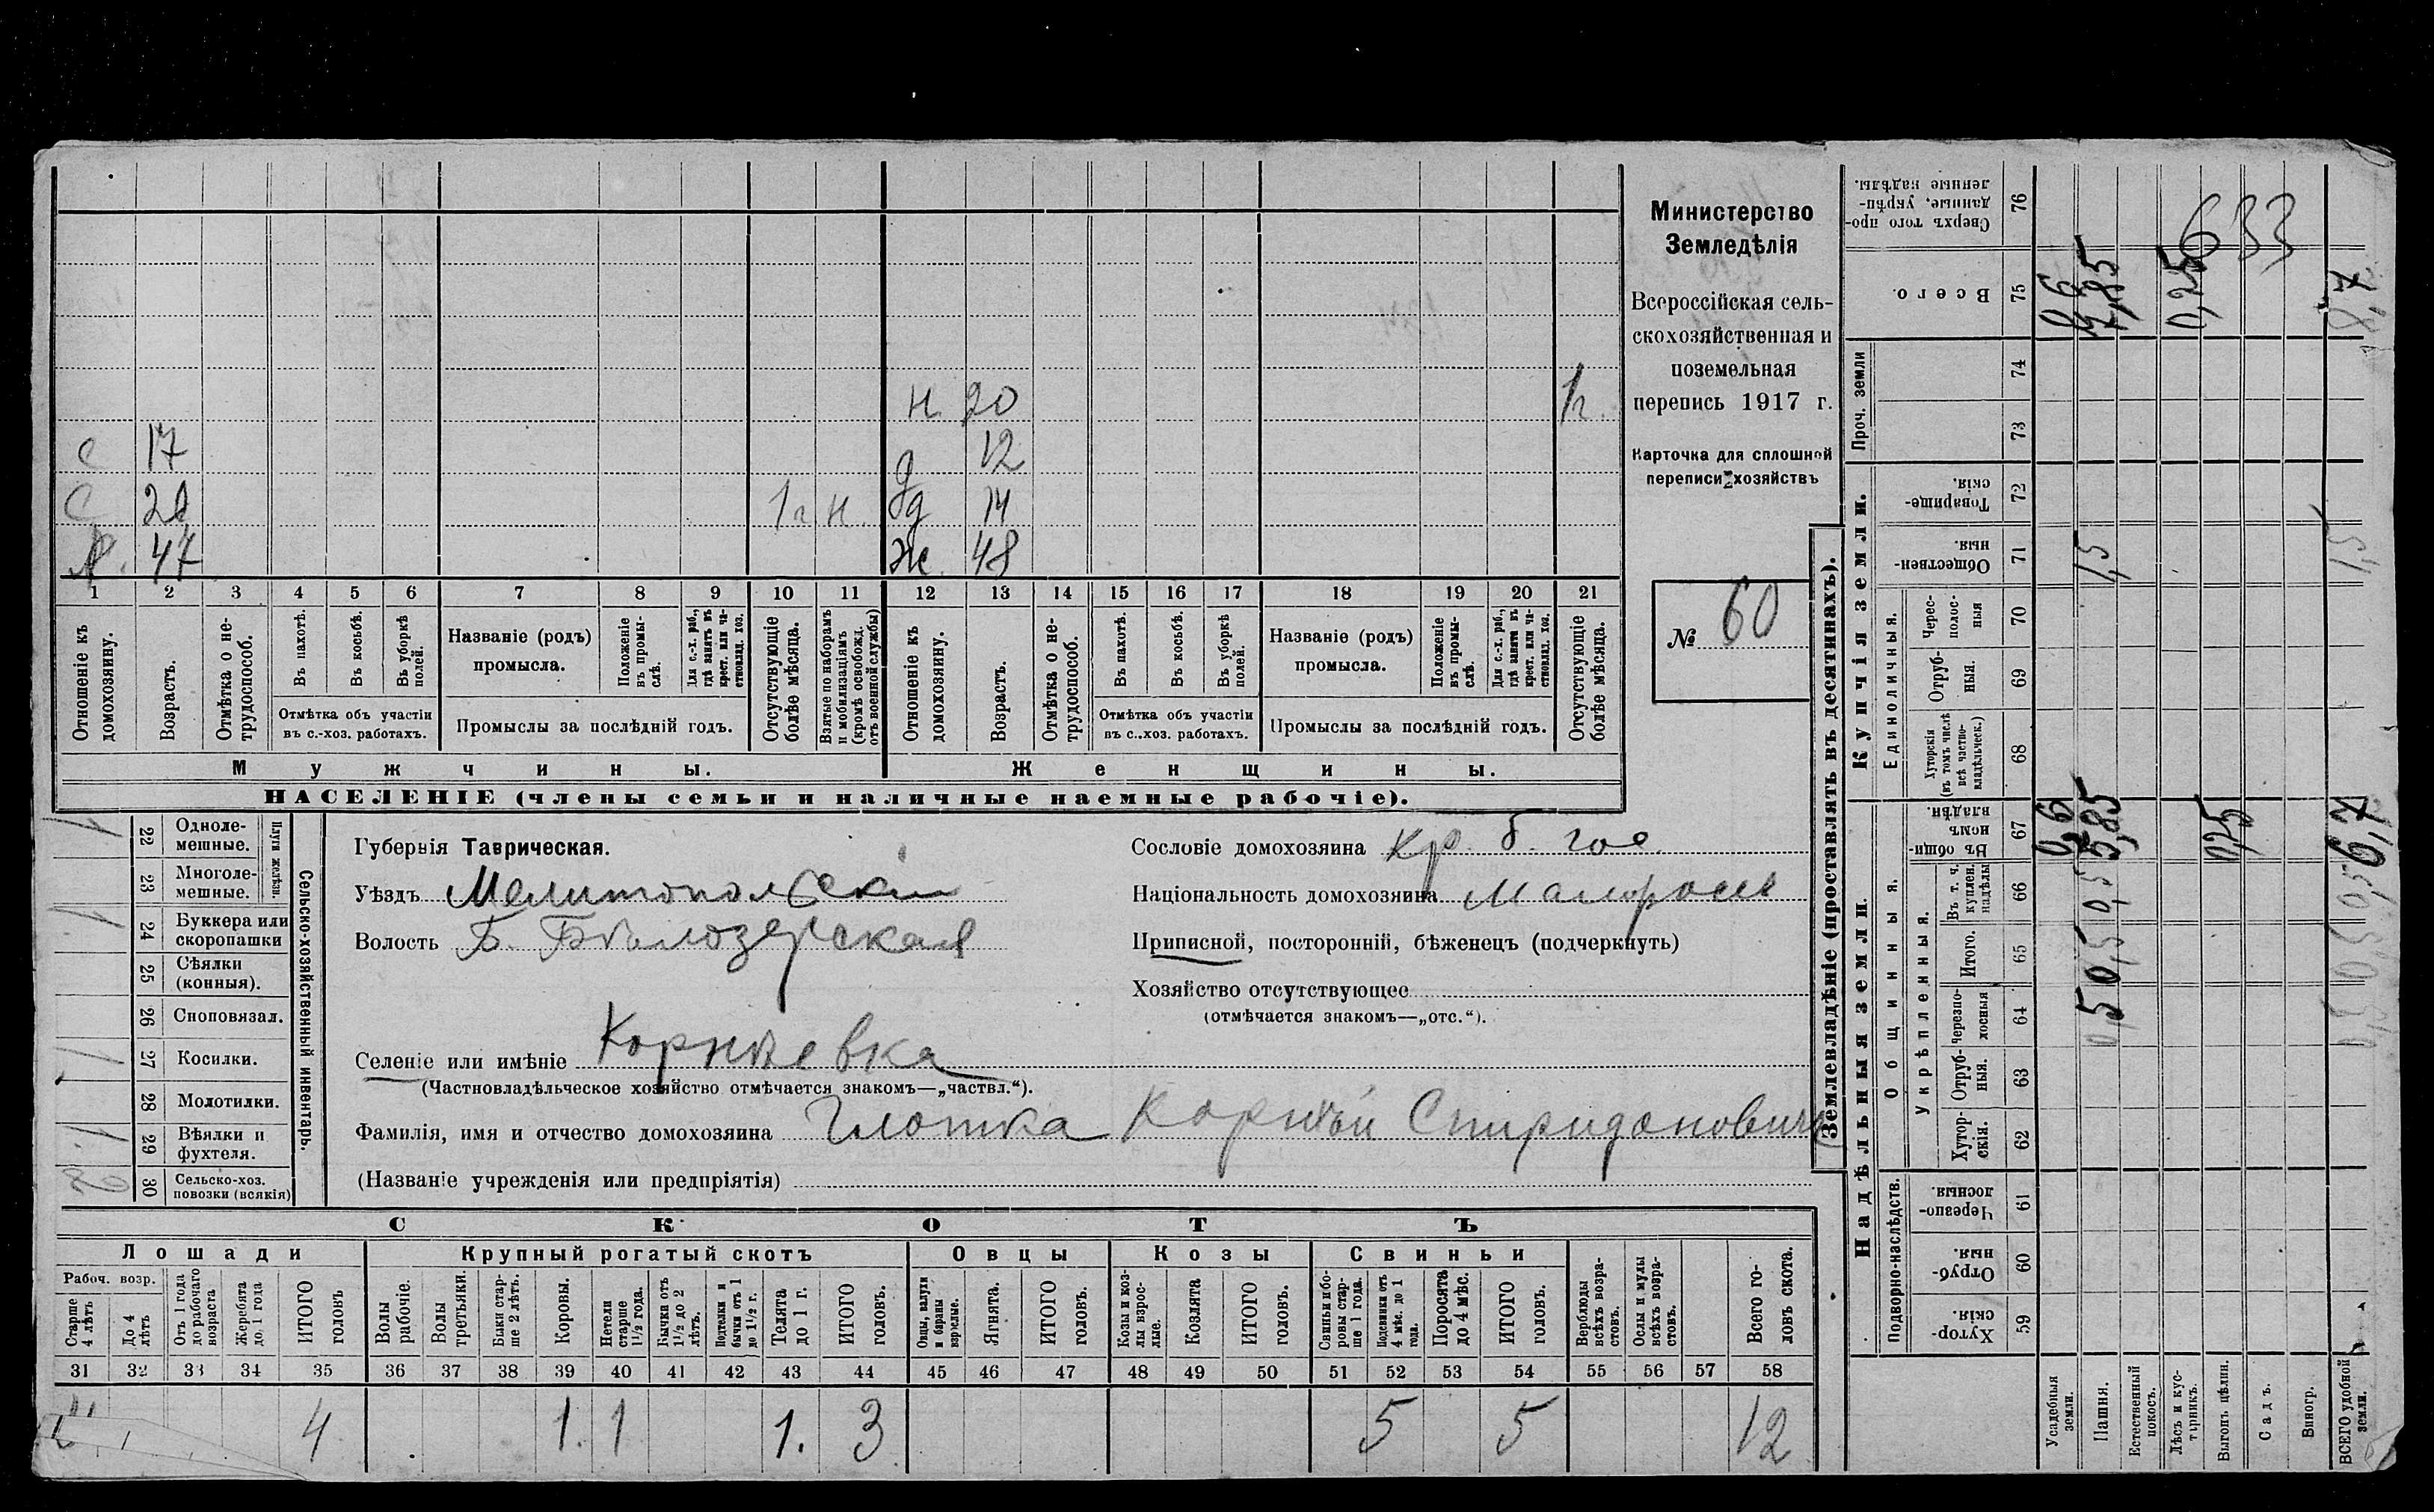 Министерство
Земледѣлія
Всероссійская сель-
скохозяйственная и
поземельная
перепись 1917 г.
Карточка для сплошной
переписи хозяйствъ
№ 60
633
н. 20 1г.
с 17 д 12
с 1г н. д 14
47 ж. 48
1 2 3 4 5 6 7 8 9 10 11 12 13 14 15 16 17 18 19 20 21
Отношеніе къ домохозяину.
Возрастъ.
Отмѣтка о не-трудоспособ.
Въ пахотѣ.
Въ косьбѣ.
Въ уборкѣ полей.
Отмѣтка объ участіи
въ с.-хоз. работахъ.
Названіе (родъ)
промысла.
Положеніе въ промы-слѣ.
Для с.-х. раб., гдѣ занятъ въ крест. или ча-стновлад. хоз.
Промыслы за послѣдній годъ.
Отсутствующіе болѣе мѣсяца.
Взятые по наборамъ и мобилизаціямъ (кромѣ освобожд. отъ военной службы)
Отношеніе къ домохозяину.
Возрастъ.
Отмѣтка о не-трудоспособ.
Въ пахотѣ.
Въ косьбѣ.
Въ уборкѣ полей.
Отмѣтка объ участіи
въ с..хоз. работахъ.
Названіе (родъ)
промысла.
Положеніе въ промы-слѣ.
Для с.-х. раб., гдѣ занята въ крест. или ча-стновлад. хоз.
Промыслы за послѣдній годъ.
Отсутствующіе болѣе мѣсяца.
Мужчины.
Женщины.
НАСЕЛЕНІЕ (члены семьи и наличные наемные рабочіе).
Сельско-хозяйственный инвентарь.
Плуги желѣзн.
1 22 Одноле-мешные.
23 Многоле-мешные.
1 24 Буккера или скоропашки
25 Сѣялки (конныя).
26 Сноповязал.
1 27 Косилки.
28 Молотилки.
1 29 Вѣялки и фухтеля.
30 Сельско-хоз. повозки (всякія)
Губернія Таврическая.
Уѣздъ Мелитопольскій
Волость Б. Бѣлозерская
Селеніе или имѣніе Корнѣевка
(Частновладѣльческое хозяйство отмѣчается знакомъ—„частвл.“).
Фамилія, имя и отчество домохозяина Глотка Корнѣй Спиридоновичъ
(Названіе учрежденія или предпріятія)
Сословіе домохозяина кр. б. гос.
Національность домохозяина Малороссъ
Приписной, посторонній, бѣженецъ (подчеркнуть)
Хозяйство отсутствующее
(отмѣчается знакомъ—„отс.“).
СКОТЪ
Лошади
Рабоч. возр.
Старше 4 лѣтъ
До 4 лѣтъ
Отъ 1 года до рабочаго возраста
Жеребята до 1 года
ИТОГО головъ
Крупный рогатый скотъ
Волы рабочіе.
Волы третьяки.
Быки стар-ше 2 лѣтъ.
Коровы.
Нетели старше 1½ года.
Бычки отъ 1½ до 2 лѣтъ.
Подтелки и бычки отъ 1 до 1½ г.
Телята до 1 г.
ИТОГО головъ.
Овцы
Овцы, валухи и бараны взрослые.
Ягнята.
ИТОГО головъ.
Козы
Козы и коз-лы взрос-лые.
Козлята
ИТОГО головъ.
Свиньи
Свиньи и бо-ровы стар-ше 1 года.
Подсвинки отъ 4 мѣс. до 1 года.
Поросята до 4 мѣс.
ИТОГО головъ.
Верблюды всѣхъ возра-стовъ.
Ослы и мулы всѣхъ возра-стовъ.
Всего го-ловъ скота.
31 32 33 34 35 36 37 38 39 40 41 42 43 44 45 46 47 48 49 50 51 52 53 54 55 56 57 58
4 1. 1 1. 3 5 5 12
Землевладѣніе (проставлять въ десятинахъ).
Надѣльныя земли.
Подворно-наслѣдств.
Хутор-скія. 59
Отруб-ныя. 60
Черезпо-лосныя. 61
Общинныя.
Укрѣпленныя.
Хутор-скія. 62
Отруб-ныя. 63
Черезпо-лосныя 64
Итого. 65
Въ т. ч. куплен. надѣлы 66
Въ общин-номъ владѣн. 67
Купчія земли.
Единоличныя.
Хуторскія (въ томъ числѣ всѣ частно-владѣльческ.) 68
Отруб-ныя. 69
Черес-полос-ныя 70
Обществен-ныя. 71
Товарище-скія. 72
Проч. земли
73
74
Всего. 75
Сверхъ того про-данные, укрѣп-ленные надѣлы. 76
Усадебныя земли. 0,6
Пашня. 0,5 0,5 0,5 5,85 1,5 7,85
Естественный покосъ.
Лѣсъ и кус-тарникъ.
Выгонъ цѣлин. 0,25 0,25
Садъ.
Виногр.
ВСЕГО удобной земли. 0,5 0,5 0,5 6,7 1,5 8,7